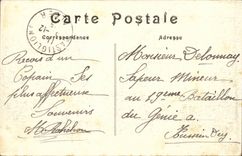 Carte Postale
Correspondance
Adresse
Reçois d'un
Copain Ses
plus affectueux
Souvenirs
Monsieur Delonnay
Sapeur Mineur
au 19eme Bataillon
du Génie à
Hussein Dey